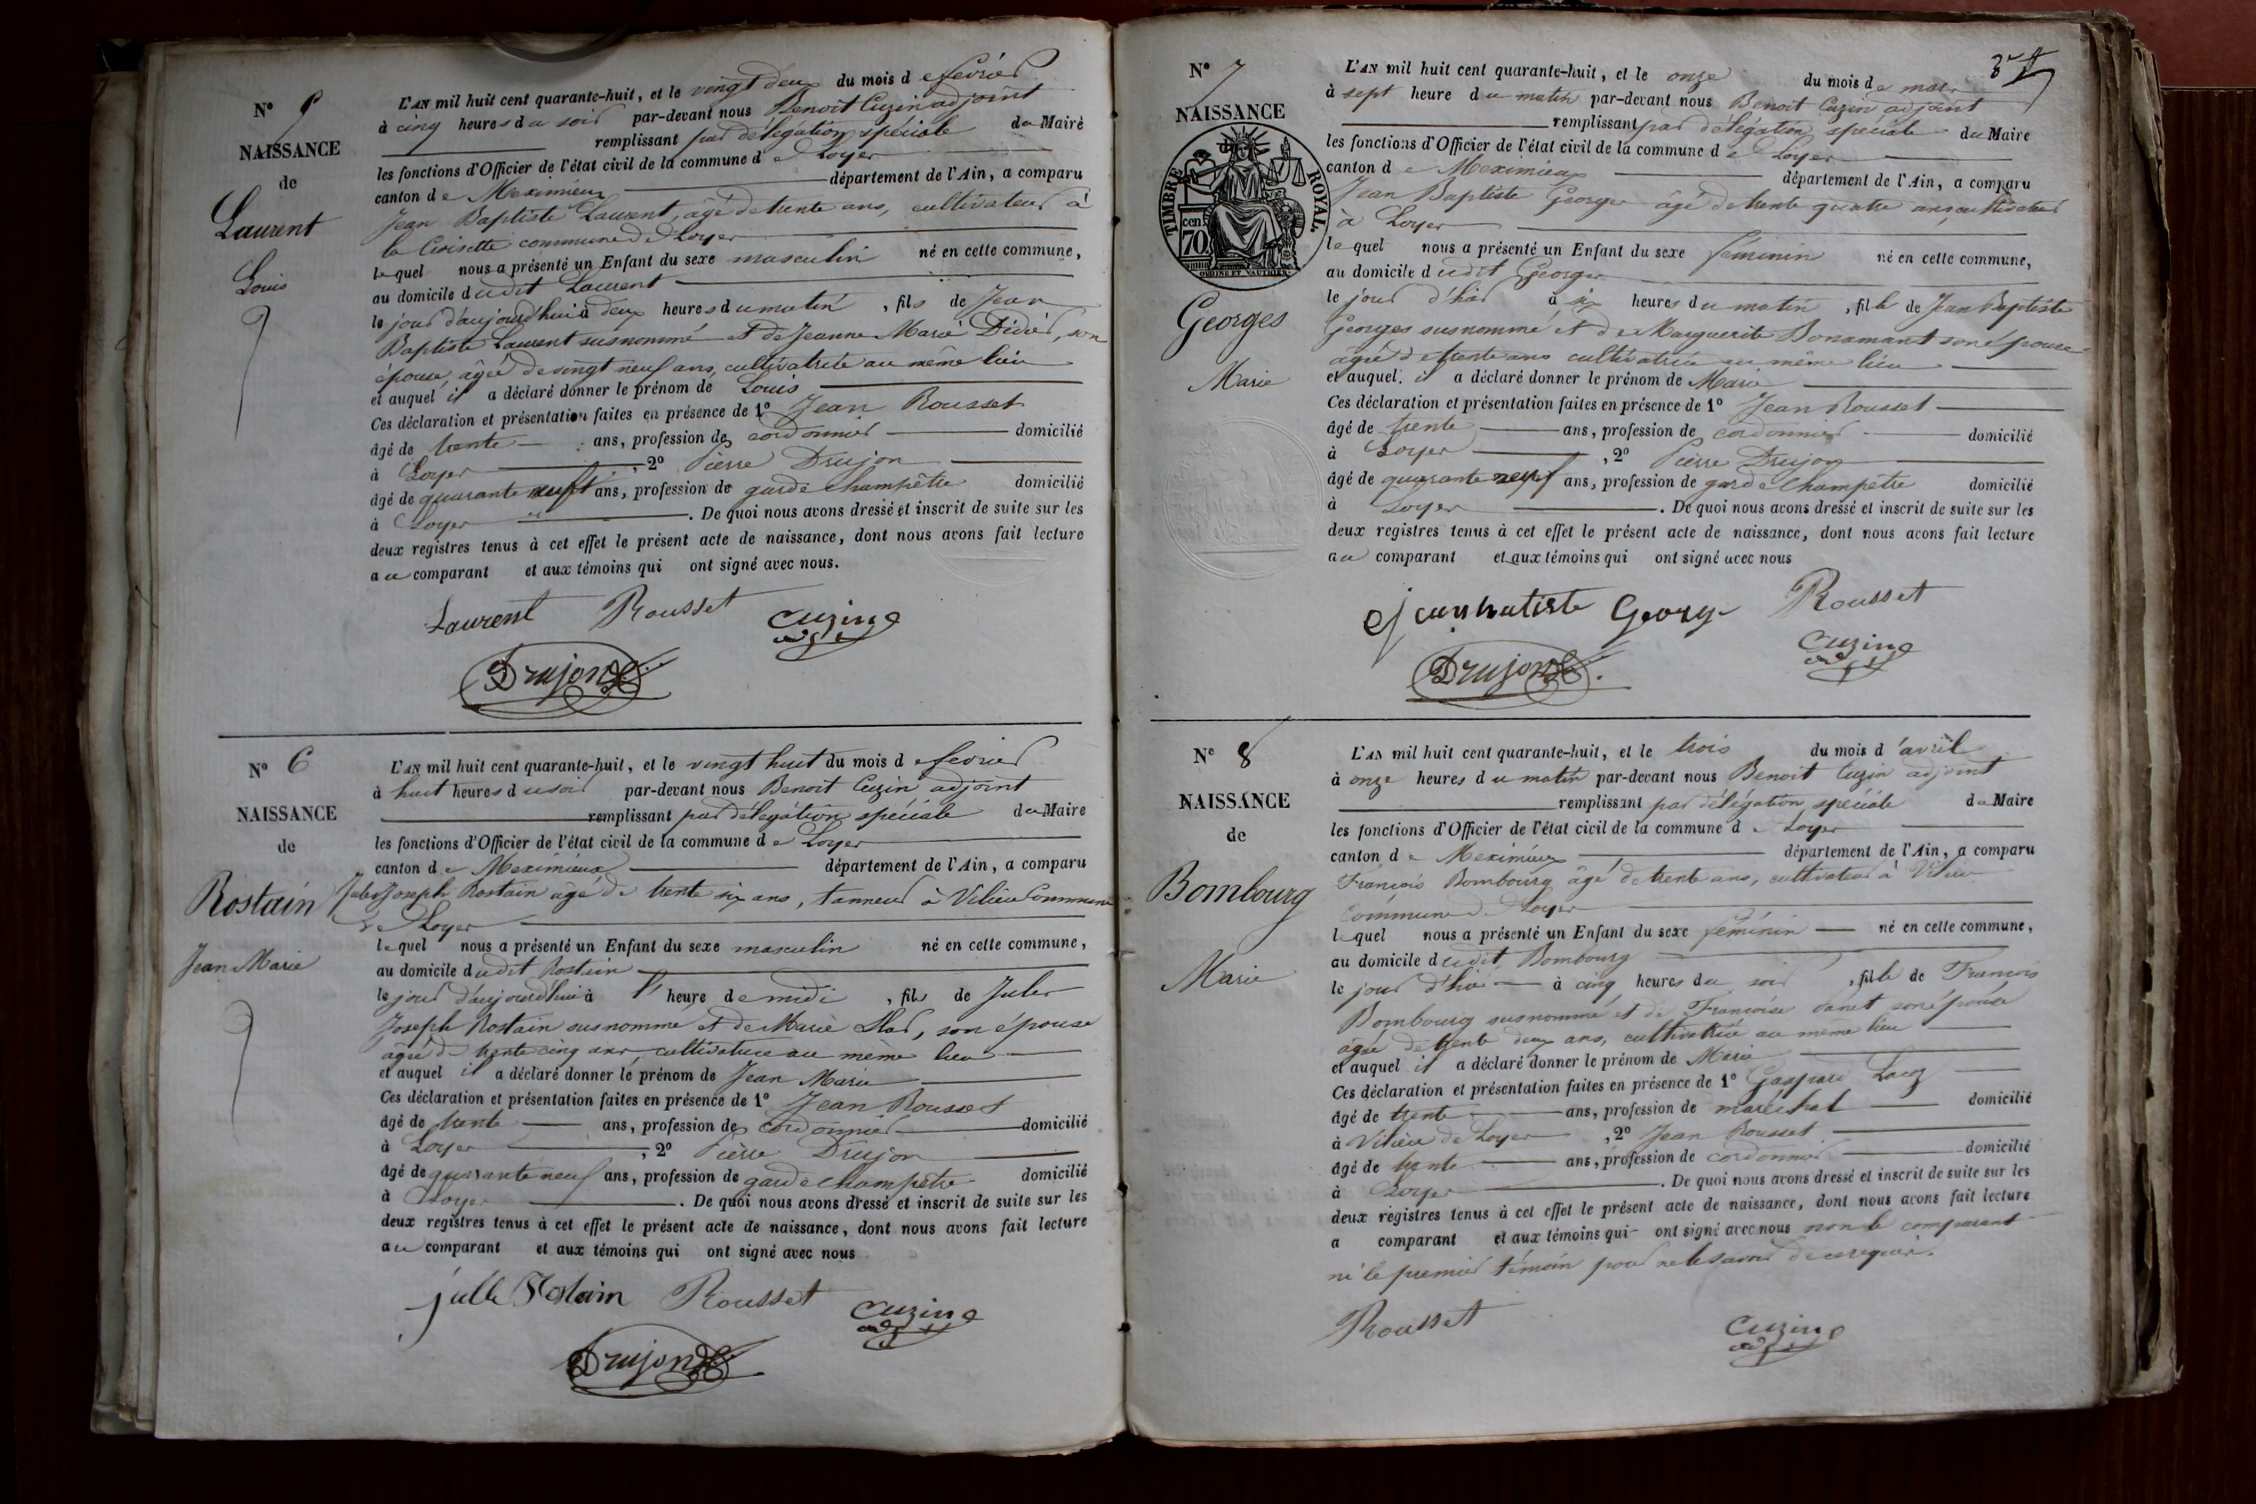 N° 5
NAISSANCE
de
Laurent
Louis
L'AN mil huit cent quarante-huit, et le vingt deux du mois de fevrier
à cinq heures du soir par-devant nous Benoit Cuzin adjoint
remplissant par délégation spéciale du Maire
les fonctions d'Officier de l'état civil de la commune de Loyer
canton de Meximieux département de l'Ain, a comparu
Jean Baptiste Laurent, âgé de trente ans, cultivateur à
la Croisette commune de Loyer
lequel nous a présenté un Enfant du sexe masculin né en cette commune,
au domicile dudit Laurent
le jour d'aujourd'hui à deux heures du matin, fils de Jean
Baptiste Laurent susnommé et de Jeanne Marie Didier, son
épouse, âgée de vingt neuf ans, cultivatrice au même lieu
et auquel il a déclaré donner le prénom de Louis
Ces déclaration et présentation faites en présence de 1° Jean Rousset
âgé de trente ans, profession de cordonnier domicilié
à Loyer, 2° Pierre Drujon
âgé de quarante neuf ans, profession de garde champêtre domicilié
à Loyer. De quoi nous avons dressé et inscrit de suite sur les
deux registres tenus à cet effet le présent acte de naissance, dont nous avons fait lecture
au comparant et aux témoins qui ont signé avec nous.
Laurent Rousset Cuzin
Drujon
N° 6
NAISSANCE
de
Rostain
Jean Marie
L'AN mil huit cent quarante-huit, et le vingt huit du mois de fevrier
à huit heures du soir par-devant nous Benoit Cuzin adjoint
remplissant par délégation spéciale du Maire
les fonctions d'Officier de l'état civil de la commune de Loyer
canton de Meximieux département de l'Ain, a comparu
Jules Joseph Rostain âgé de trente six ans, tanneur à Vilieu Commune
de Loyer
lequel nous a présenté un Enfant du sexe masculin né en cette commune,
au domicile dudit Rostain
le jour d'aujourd'hui à l'heure de midi, fils de Jules
Joseph Rostain susnommé et de Marie, son épouse
âgée de trente cinq ans, cultivatrice au même lieu
et auquel il a déclaré donner le prénom de Jean Marie
Ces déclaration et présentation faites en présence de 1° Jean Rousset
âgé de trente ans, profession de cordonnier domicilié
à Loyer, 2° Pierre Drujon
âgé de quarante neuf ans, profession de garde champêtre domicilié
à Loyer. De quoi nous avons dressé et inscrit de suite sur les
deux registres tenus à cet effet le présent acte de naissance, dont nous avons fait lecture
au comparant et aux témoins qui ont signé avec nous
julle Rostain Rousset Cuzin
Drujon
N° 7
NAISSANCE
TIMBRE ROYAL
70 cen
Georges
Marie
L'AN mil huit cent quarante-huit, et le onze du mois de mars
à sept heure du matin par-devant nous Benoit Cuzin adjoint
remplissant par délégation spéciale du Maire
les fonctions d'Officier de l'état civil de la commune de Loyer
canton de Meximieux département de l'Ain, a comparu
Jean Baptiste Georges âgé de trente quatre ans, cultivateur
à Loyer
lequel nous a présenté un Enfant du sexe féminin né en cette commune,
au domicile dudit Georges
le jour d'hier à six heures du matin, fille de Jean Baptiste
Georges susnommé et de Marguerite Bonamant son épouse
âgée de trente ans cultivatrice au même lieu
et auquel il a déclaré donner le prénom de Marie
Ces déclaration et présentation faites en présence de 1° Jean Rousset
âgé de trente ans, profession de cordonnier domicilié
à Loyer, 2° Pierre Drujon
âgé de quarante neuf ans, profession de garde champêtre domicilié
à Loyer. De quoi nous avons dressé et inscrit de suite sur les
deux registres tenus à cet effet le présent acte de naissance, dont nous avons fait lecture
au comparant et aux témoins qui ont signé avec nous
jeanbatiste George Rousset
Cuzin
Drujon
N° 8
NAISSANCE
de
Bombourg
Marie
L'AN mil huit cent quarante-huit, et le trois du mois d'avril
à onze heures du matin par-devant nous Benoit Cuzin adjoint
remplissant par délégation spéciale du Maire
les fonctions d'Officier de l'état civil de la commune de Loyer
canton de Meximieux département de l'Ain, a comparu
François Bombourg âgé de trente ans, cultivateur à Vilieu
Commune de Loyer
lequel nous a présenté un Enfant du sexe féminin né en cette commune,
au domicile dudit Bombourg
le jour d'hier à cinq heures du soir, fille de François
Bombourg susnommé et de Françoise son épouse
âgée de trente deux ans, cultivatrice au même lieu
et auquel il a déclaré donner le prénom de Marie
Ces déclaration et présentation faites en présence de 1° Gaspard
âgé de trente ans, profession de maréchal domicilié
à Vilieu de Loyer, 2° Jean Rousset
âgé de trente ans, profession de cordonnier domicilié
à Loyer. De quoi nous avons dressé et inscrit de suite sur les
deux registres tenus à cet effet le présent acte de naissance, dont nous avons fait lecture
a comparant et aux témoins qui ont signé avec nous non le comparant
ni le premier témoin pour ne le savoir de ce requis.
Rousset Cuzin